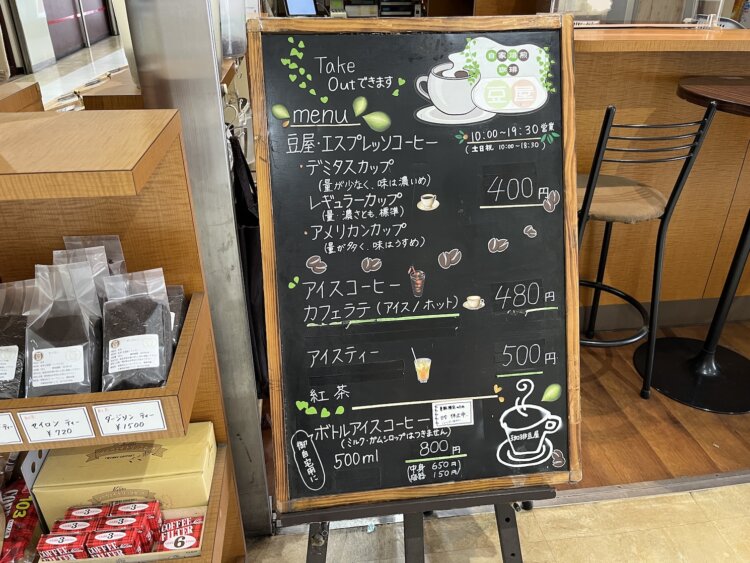 Take
Outできます
自家焙煎
珈琲
豆屋
menu
10:00〜19:30営業
(土日祝 10:00〜18:30)
豆屋・エスプレッソコーヒー
・デミタスカップ
(量が少なく、味は濃いめ)
400円
・レギュラーカップ
(量・濃さとも、標準)
・アメリカンカップ
(量が多く、味はうすめ)
アイスコーヒー
カフェラテ(アイス/ホット)
480円
アイスティー
500円
紅茶
ボトルアイスコーヒー
(ミルク・ガムシロップはつきません)
御自宅用に
500ml
800円
中身 650円
容器 150円
珈琲豆屋
セイロン ティー
¥720
ダージリン ティー
¥1500
103
3
3
3
COFFEE
FILTER
6